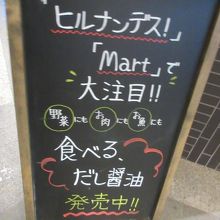 「ヒルナンデス!」
「Mart」で
大注目!!
野菜にも お肉にも お魚にも
食べる、
だし醤油
発売中!!